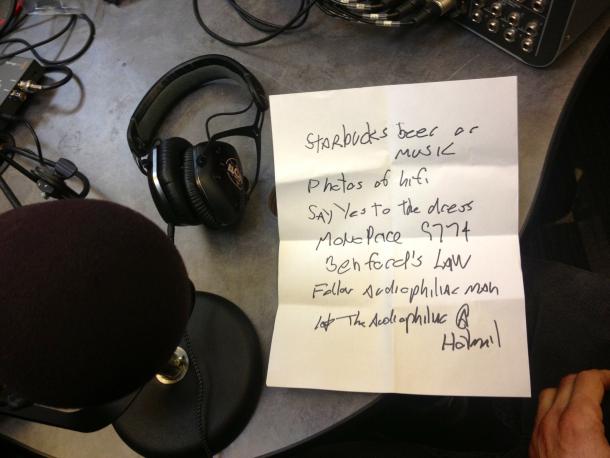 Starbucks beer or
music
Photos of hifi
Say Yes to the dress
MonoPrice 9774
Benford's Law
Follow Audiophiliac man
The Audiophiliac @
Hotmail